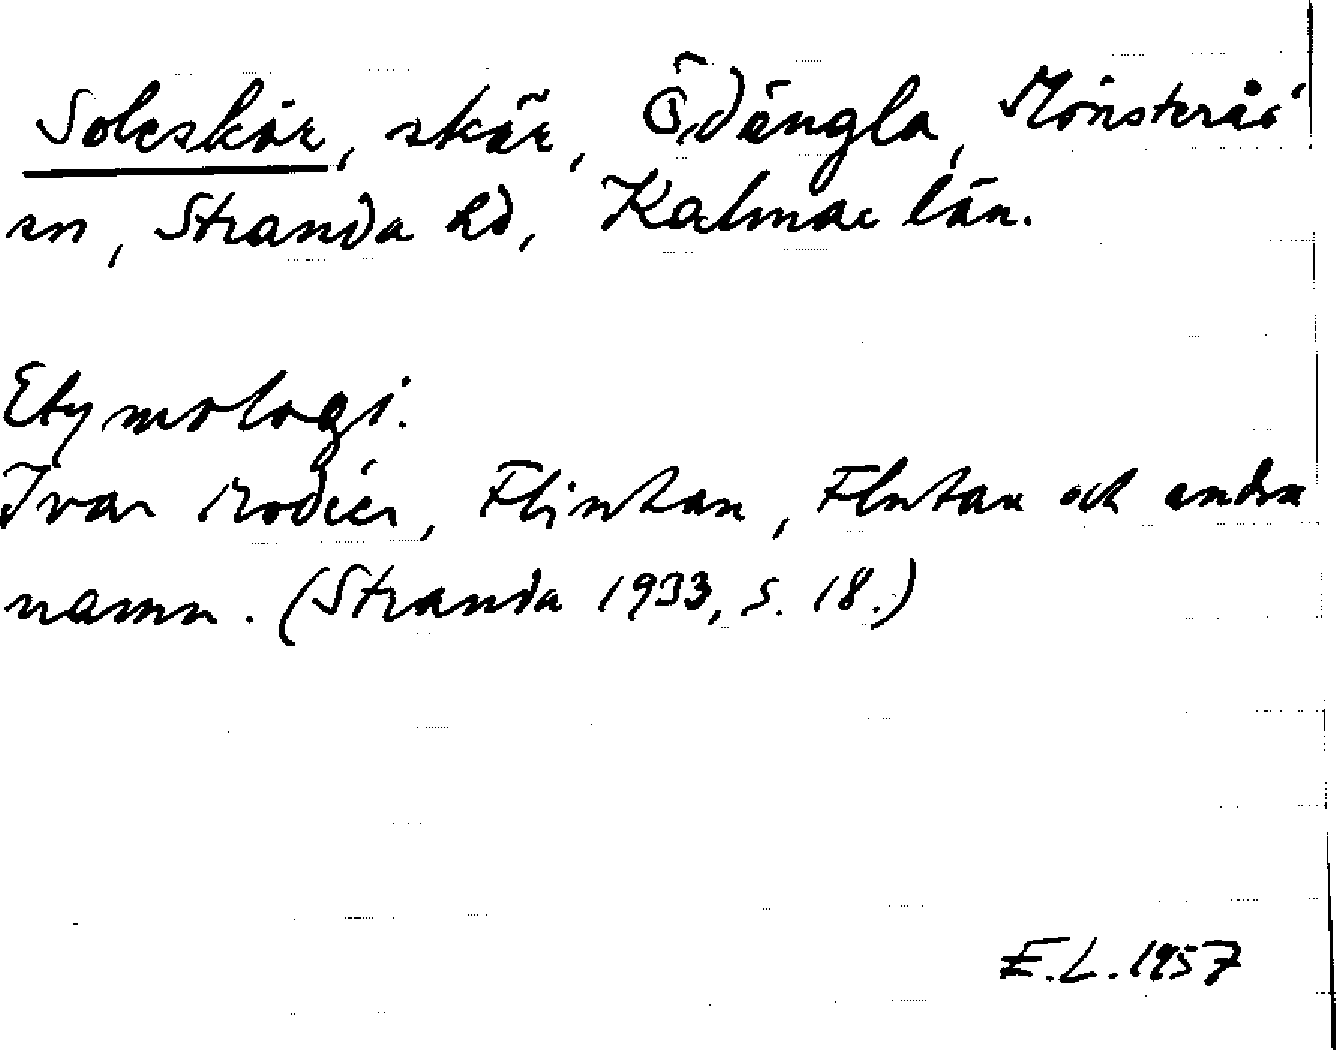 Soleskär, skär, Ödängla, Mönsterås
sn, Stranda hd, Kalmar län.
Etymologi.
Ivar Modéer, Flintan, Flutan och andra
namn. (Stranda 1933, s. 18.)
E.L. 1957